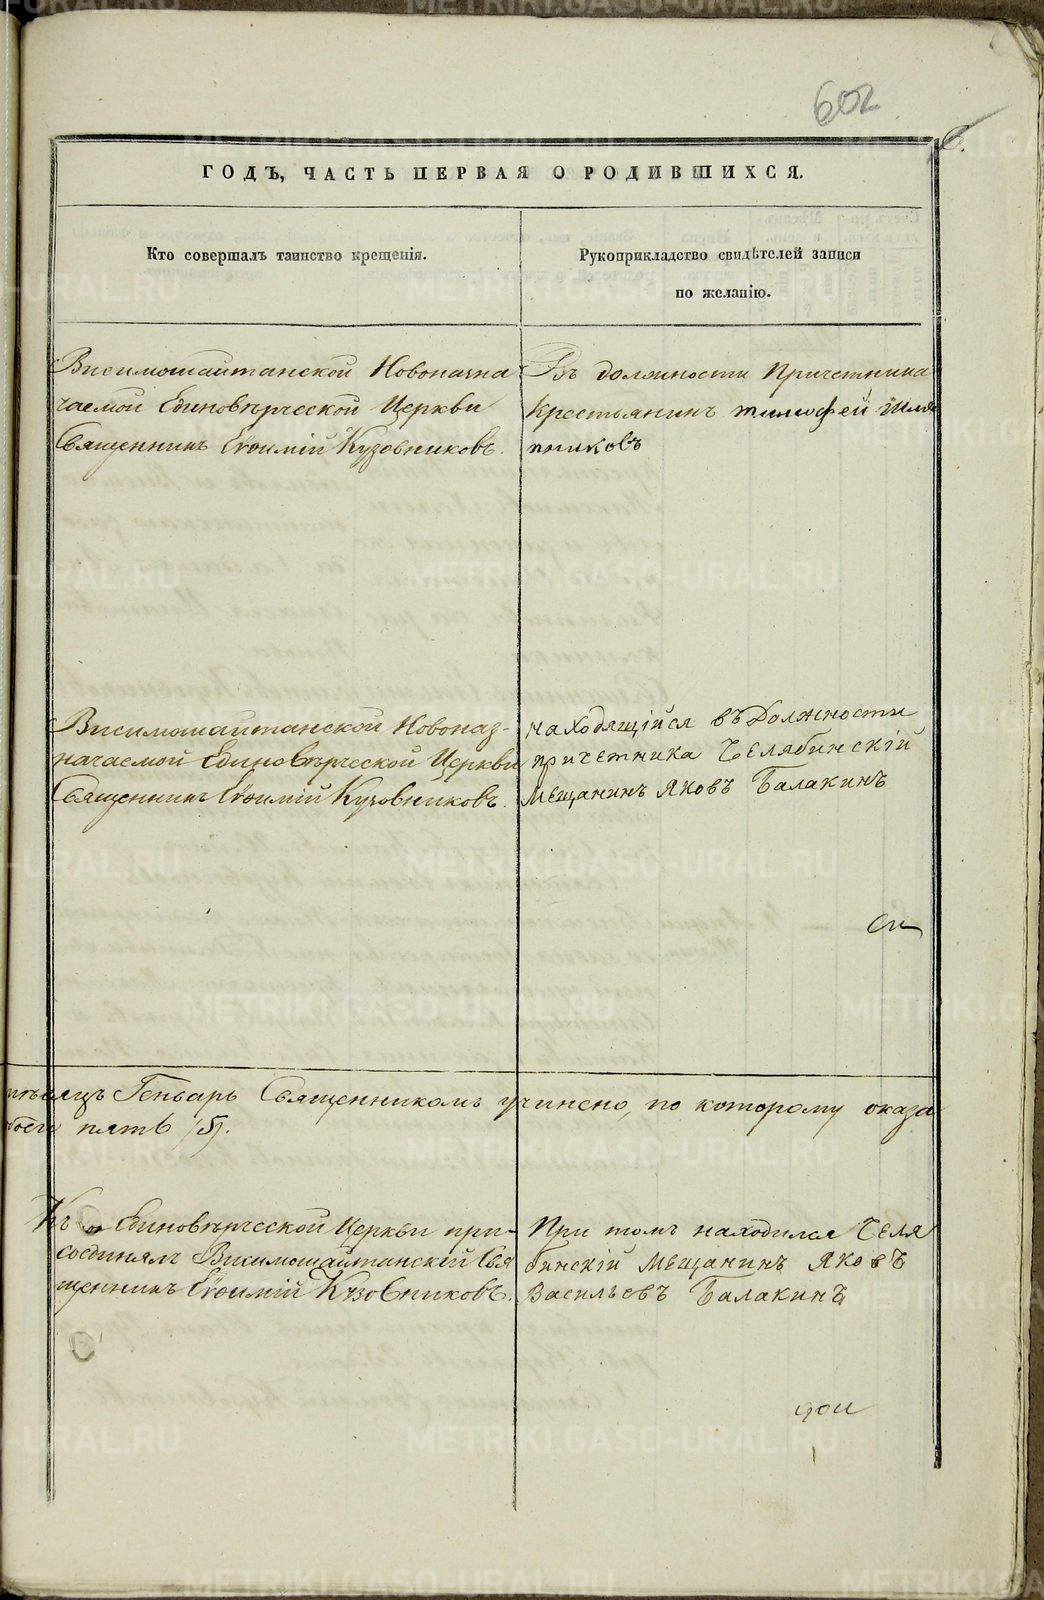 602
6.
ГОДЪ, ЧАСТЬ ПЕРВАЯ О РОДИВШИХСЯ.
Кто совершалъ таинство крещенія.
Рукоприкладство свидѣтелей записи
по желанію.
Висимошайтанской Новоназна
чаемой Единовѣрческой Церкви
Священникъ Евѳимій Кузовниковъ.
Въ должности Причетника
Крестьянинъ тимофей Шля
пниковъ
Висимошайтанской Новоназ-
начаемой Единовѣрческой Церкви
Священникъ Евѳимій Кузовниковъ.
находящійся въ Должности
причетника Челябинскій
Мещанинъ Яковъ Балакинъ
мѣсяцъ Генварь Священникомъ учинено, по которому оказа
лось пять /5/.
Къ Единовѣрческой Церкви при-
соединялъ Висимошайтанскій Свя
щенникъ Евѳимій Кузовниковъ.
При томъ находился Челя
бинскій Мещанинъ Яковъ
Васильевъ Балакинъ
METRIKI.GASO-URAL.RU